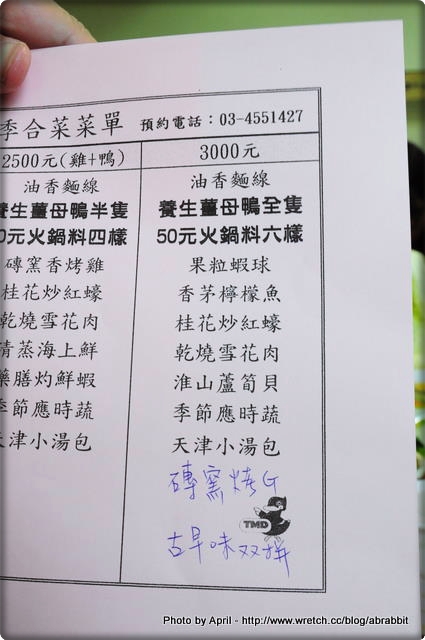 季合菜菜單 預約電話：03-4551427
2500元(雞+鴨)
油香麵線
養生薑母鴨半隻
0元火鍋料四樣
磚窯香烤雞
桂花炒紅蠔
乾燒雪花肉
清蒸海上鮮
藥膳灼鮮蝦
季節應時蔬
天津小湯包
3000元
油香麵線
養生薑母鴨全隻
50元火鍋料六樣
果粒蝦球
香茅檸檬魚
桂花炒紅蠔
乾燒雪花肉
淮山蘆筍貝
季節應時蔬
天津小湯包
磚窯烤G
TMD
古早味双拼
Photo by April - http://www.wretch.cc/blog/abrabbit